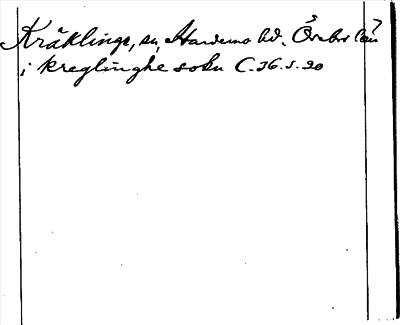 Kräklinge, sn, Hardemo hd. Örebro län
i kreglinghe sokn C.36.s.20